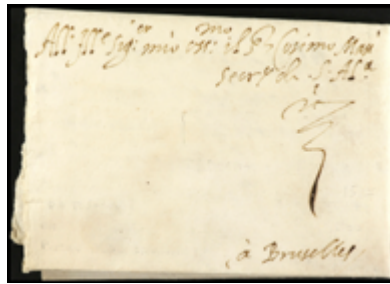 All. Ill.e Sig.er mio oss.mo il S.r Cosimo Masi
Secr.o di S. Al.a
à Bruselles